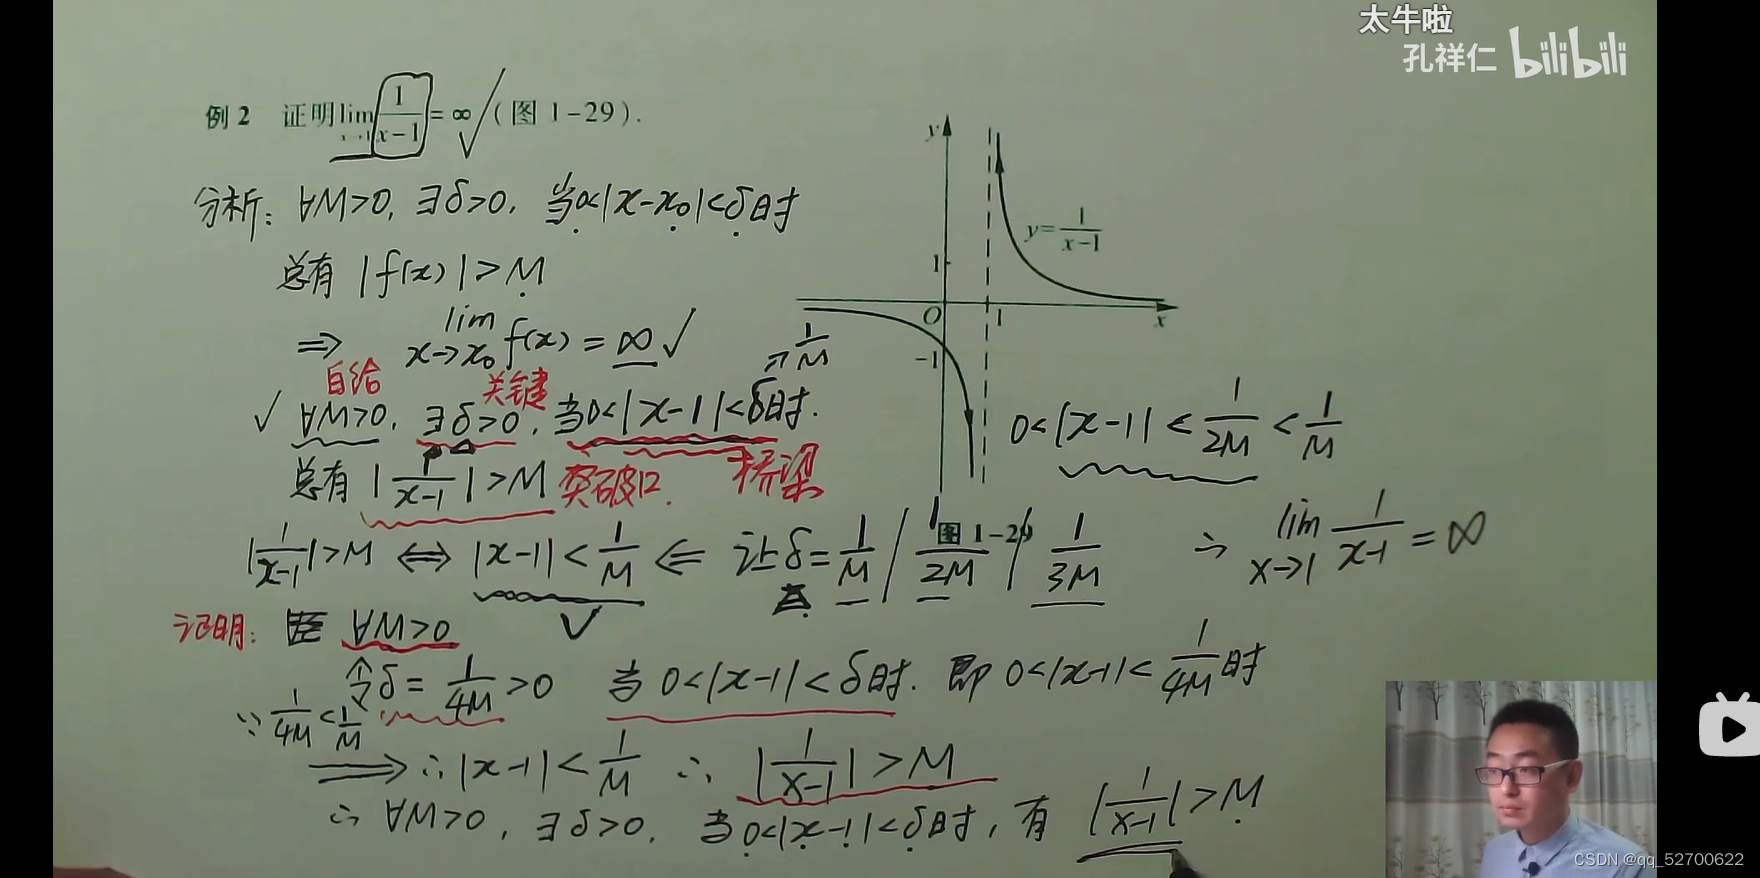 太牛啦
孔祥仁 bilibili
例 2 证明 lim 1/(x-1) = ∞ (图 1-29).
分析: ∀M>0, ∃δ>0, 当0<|x-x₀|<δ时
总有 |f(x)|>M
⇒ lim x→x₀ f(x) = ∞ ✓
自给 关键 1/M
✓ ∀M>0, ∃δ>0, 当0<|x-1|<δ时.
总有 |1/(x-1)|>M 突破口. 桥梁
|1/(x-1)|>M ⇔ |x-1|<1/M ⇐ 让δ=1/M / 1/2M / 1/3M
✓
y
y=1/(x-1)
1
O 1 x
-1
图 1-29
0<|x-1|<1/2M<1/M
∴ lim x→1 1/(x-1) = ∞
证明: ∀M>0
令δ=1/4M>0 当 0<|x-1|<δ时. 即 0<|x-1|<1/4M时
∵ 1/4M<1/M
⇒ ∴ |x-1|<1/M ∴ |1/(x-1)|>M
∴ ∀M>0, ∃δ>0, 当0<|x-1|<δ时, 有 |1/(x-1)|>M
CSDN @qq_52700622